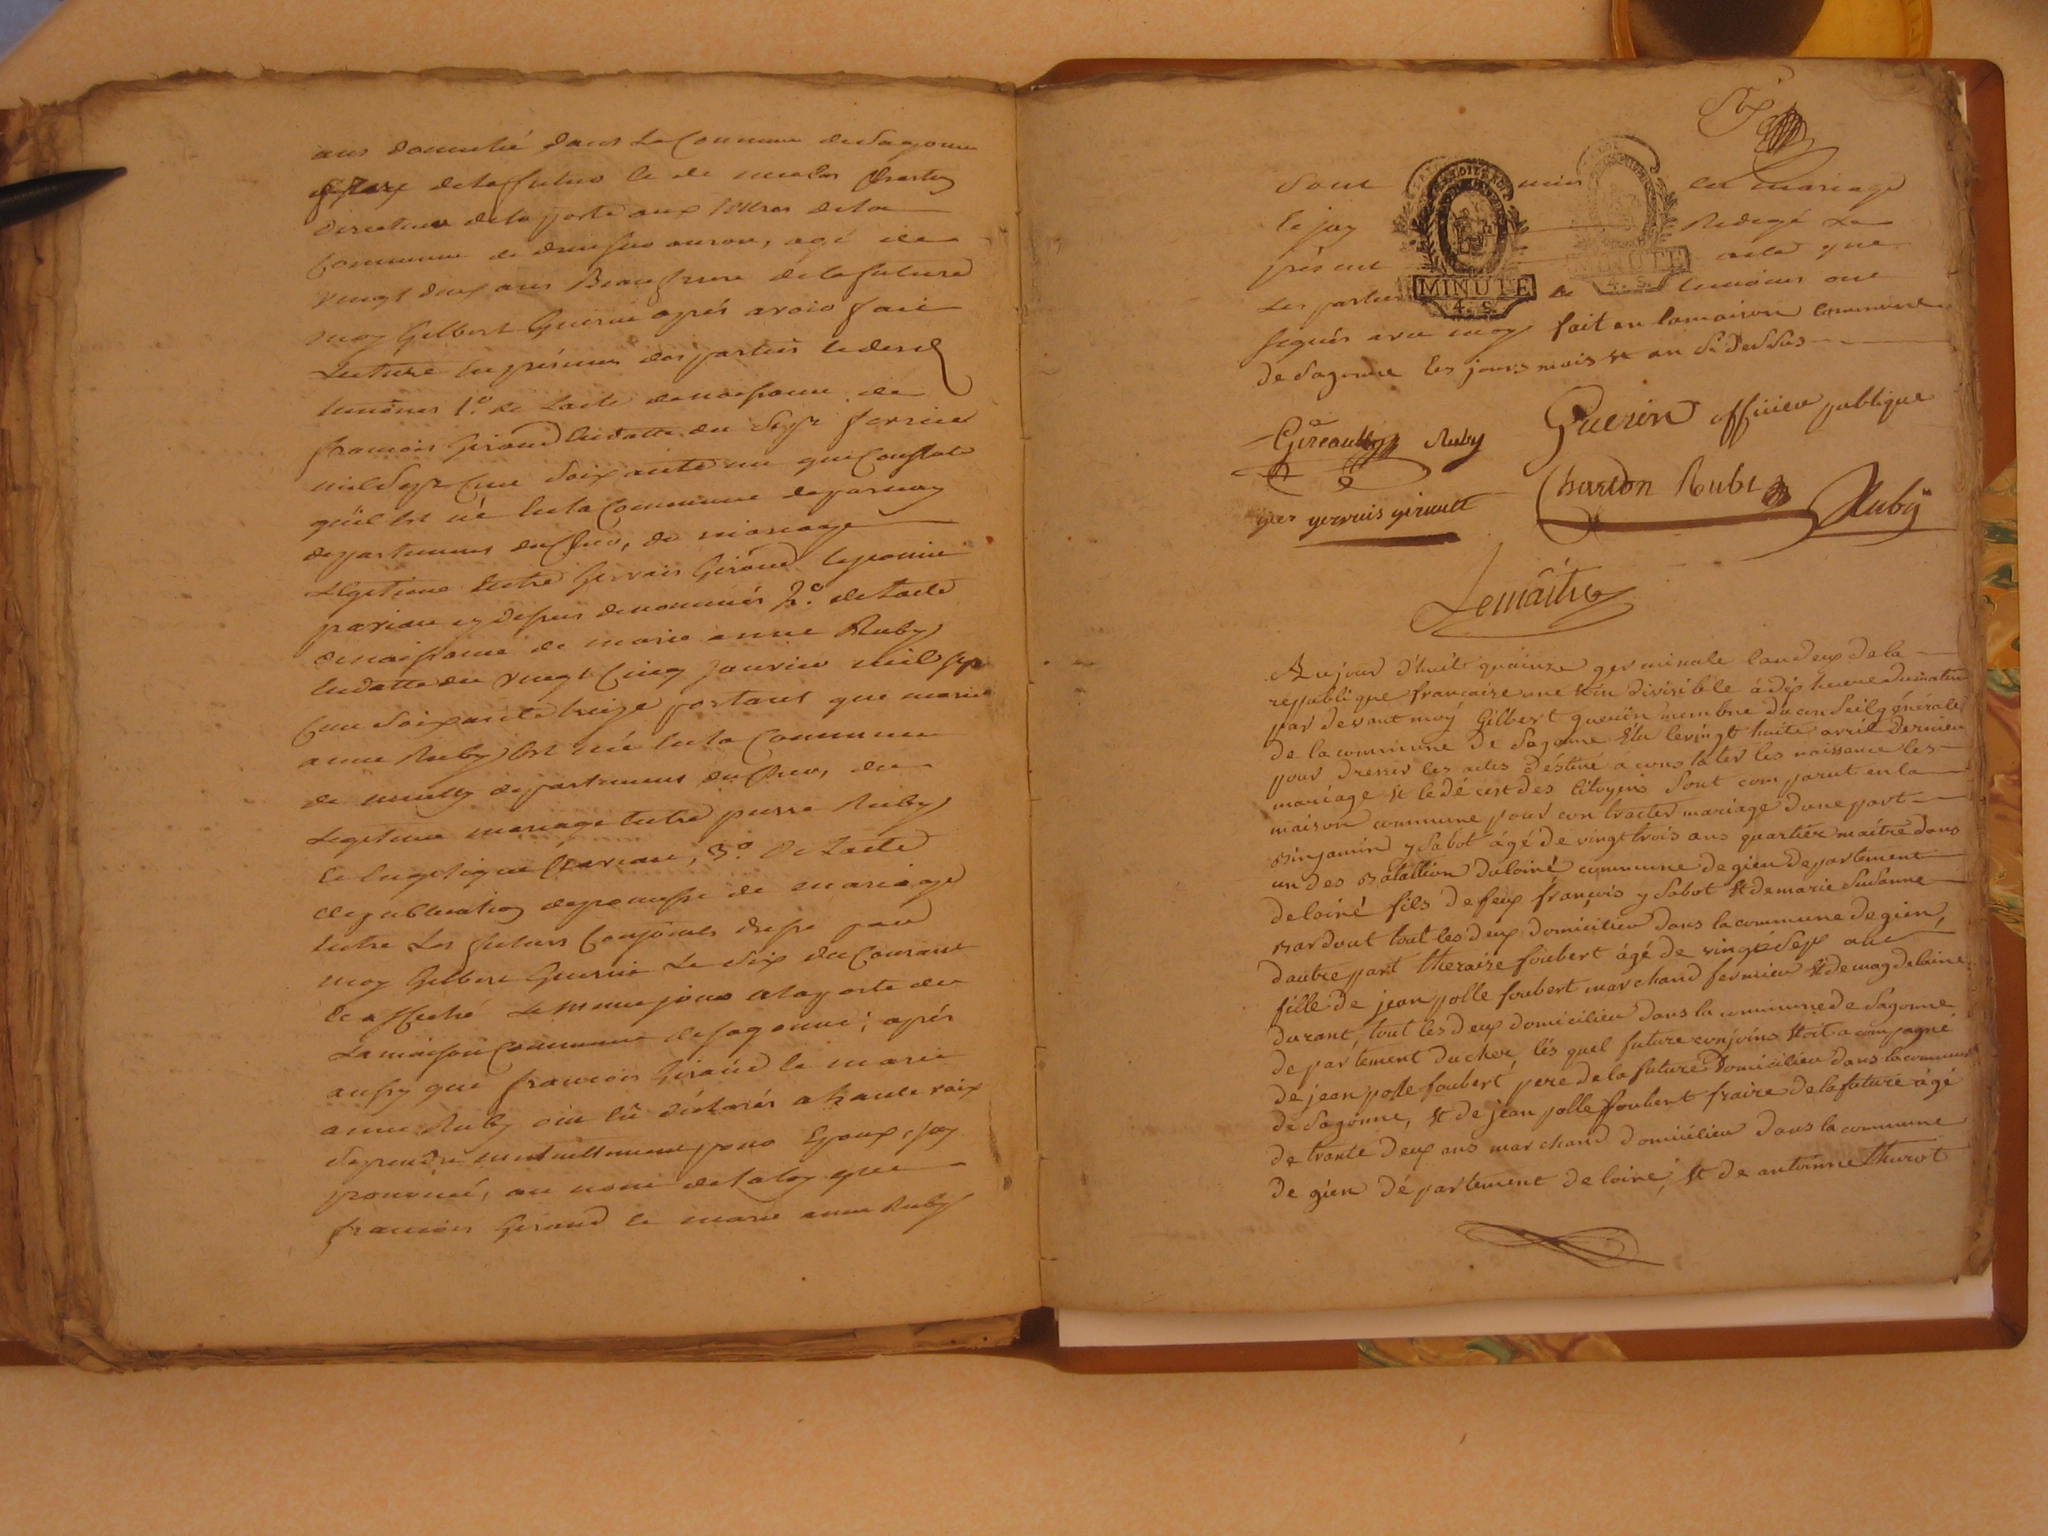 ans domicilié dans la Commune de Sagonne
frere de la future et de
Directeur de la poste aux lettres de la
Commune de dun sur auron, agé de
vingt deux ans Beau frere de la future
moy Gilbert Guerin après avoir fait
Lecture en présence des parties et desd
temoins 1.º de Lacte de naissance de
francois Giraud en datte du Sept fevrier
mil Sept Cent Soixante un qui Constate
quil est né en la Commune de
departement du Cher, du mariage
Legitime entre Gervais Giraud
cy dessus denommés 2.º de Lacte
de naissance de marie anne Ruby
en datte du vingt Cinq janvier mil Sept
Cent Soixante treize portant que marie
anne Ruby est née en la Commune
de neuilly departement du Cher, du
Legitime mariage entre pierre Ruby
et 3.º de Lacte
de publication de promesse de mariage
entre Les futurs Conjoints dressé par
moy Gilbert Guerin Le Six du Courant
et affiché Le meme jour a la porte de
La maison Commune de Sagonne; après
aussy que francois Giraud et marie
anne Ruby ont déclarés a haute voix
Se prendre mutuellement pour Epoux, jay
prononcé, au nom de la loy que
francois Giraud et marie anne Ruby
Sont unis en mariage
et jay Redigé Le
présent acte que
Les parties et temoins ont
Signés avec moy fait en lamaison commune
de Sagonne les jours mois et an Si Dessus
MINUTE
4. S.
MINUTE
4. S.
Gireault Ruby Guerin officier publique
gervais girault Chardon Rubi Ruby
Lemaitre
Aujour d'huit quainze germinale lan deux de la
republique francaise une et in divisible à dix heure dumatin
par devant moy Gilbert guerin membre du con Seil générale
de la commune de Sagonne élu le vingt huite avril dernier
pour dresser les actes déstiné a constater les naissance les
mariage et le décest des Citoyens Sont comparut en la
maison commune pour contracter mariage dune part
Binjamin ysabot âgé de vingt trois ans quartier maitre dans
un des Batallion du loiré commune de gien departement
de loiré fils de feux françois ysabot et de marie Susanne
Bardout tout les deux domicilier dans la commune de gien,
dautre part theraise foubert âgé de vingt Sept ans
fille de jean polle foubert marchand fermier et de magdelaine
durant, tout les deux domicilier dans la commune de Sagonne
departement du cher, lés quel future conjoins étoit acompagné
de jean polle foubert pere de la future domicilier dans la commune
de Sagonne, et de jean polle foubert fraire de la future âgé
de trante deux ans marchand domicilier dans la commune
de gien département de loiré, et de antoinne thurot